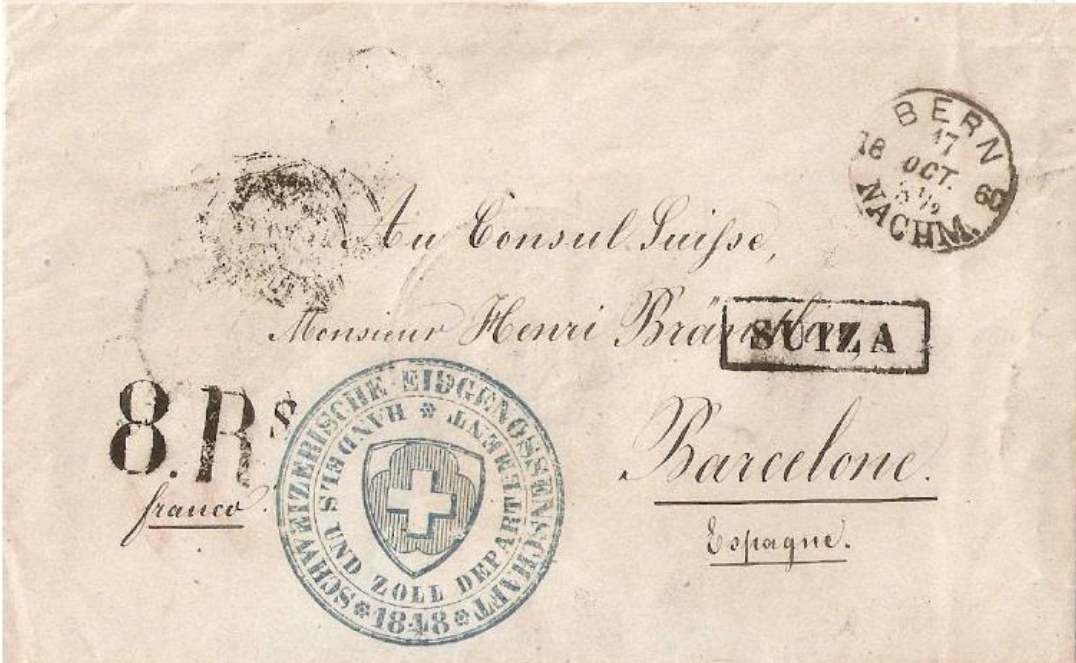 BERN
17
18 OCT. 60
NACHM.
Au Consul Suisse,
Monsieur Henri
SUIZA
8.Rs
franco
Barcelone.
Espagne.
SCHWEIZERISCHE EIDGENOSSENSCHAFT
HANDELS UND ZOLL DEPARTEMENT
1848